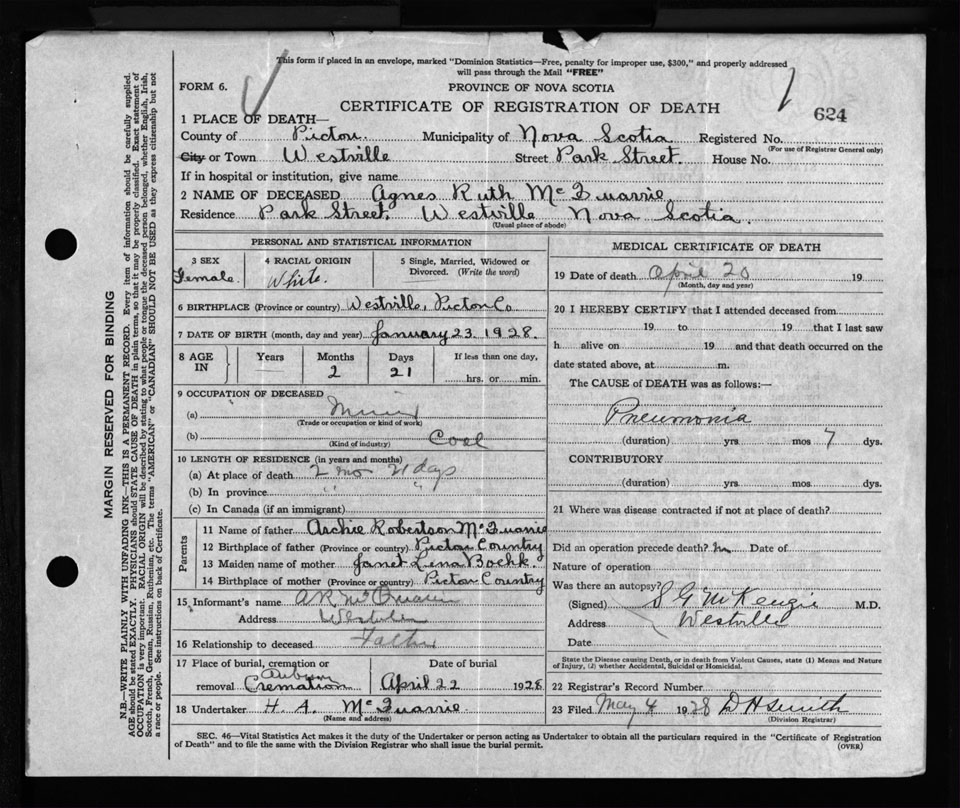 This form if placed in an envelope, marked "Dominion Statistics—Free, penalty for improper use, $300," and properly addressed
will pass through the Mail "FREE"
FORM 6.
PROVINCE OF NOVA SCOTIA
CERTIFICATE OF REGISTRATION OF DEATH
624
1 PLACE OF DEATH—
County of Pictou. Municipality of Nova Scotia Registered No.
(For use of Registrar General only)
City or Town Westville Street Park Street. House No.
If in hospital or institution, give name
2 NAME OF DECEASED Agnes Ruth McQuarrie
Residence Park Street. Westville Nova Scotia.
(Usual place of abode)
PERSONAL AND STATISTICAL INFORMATION
3 SEX 4 RACIAL ORIGIN 5 Single, Married, Widowed or
Divorced. (Write the word)
Female White.
6 BIRTHPLACE (Province or country) Westville, Pictou Co
7 DATE OF BIRTH (month, day and year) January 23. 1928.
8 AGE IN Years Months Days If less than one day,
2 21 hrs. or min.
9 OCCUPATION OF DECEASED
(a) Miner
(Trade or occupation or kind of work)
(b) Coal
(Kind of industry)
10 LENGTH OF RESIDENCE (in years and months)
(a) At place of death 2 mo 21 days
(b) In province " "
(c) In Canada (if an immigrant)
Parents
11 Name of father Archie Robertson McQuarrie
12 Birthplace of father (Province or country) Pictou Country
13 Maiden name of mother Janet Lena
14 Birthplace of mother (Province or country) Pictou Country
15 Informant's name A R McQuarrie
Address Westville
16 Relationship to deceased Father
17 Place of burial, cremation or Date of burial
Auburn
removal Cremation April 22 1928
18 Undertaker H. A. McQuarrie
(Name and address)
MEDICAL CERTIFICATE OF DEATH
19 Date of death April 20 19
(Month, day and year)
20 I HEREBY CERTIFY that I attended deceased from
19 to 19 that I last saw
h alive on 19 and that death occurred on the
date stated above, at m.
The CAUSE of DEATH was as follows:—
Pneumonia
(duration) yrs mos 7 dys.
CONTRIBUTORY
(duration) yrs. mos dys.
21 Where was disease contracted if not at place of death?
Did an operation precede death? no Date of
Nature of operation
Was there an autopsy?
(Signed) S G McKenzie M.D.
Address Westville
Date
State the Disease causing Death, or in death from Violent Causes, state (1) Means and Nature
of Injury, (2) whether Accidental, Suicidal or Homicidal.
22 Registrar's Record Number
23 Filed May 4 1928 D H Smith
(Division Registrar)
SEC. 46—Vital Statistics Act makes it the duty of the Undertaker or person acting as Undertaker to obtain all the particulars required in the "Certificate of Registration
of Death" and to file the same with the Division Registrar who shall issue the burial permit.
(OVER)
MARGIN RESERVED FOR BINDING
N.B.—WRITE PLAINLY WITH UNFADING INK—THIS IS A PERMANENT RECORD. Every item of information should be carefully supplied.
AGE should be stated EXACTLY. PHYSICIANS should STATE CAUSE OF DEATH in plain terms, so that it may be properly classified. Exact statement of
OCCUPATION is very important. RACIAL ORIGIN will be described by stating to what people or tongue the deceased person belonged, whether English, Irish,
Scotch, French, German, Russian, Ruthenian, etc. The terms "AMERICAN" or "CANADIAN" SHOULD NOT BE USED as they express citizenship but not
a race or people. See instructions on back of Certificate.